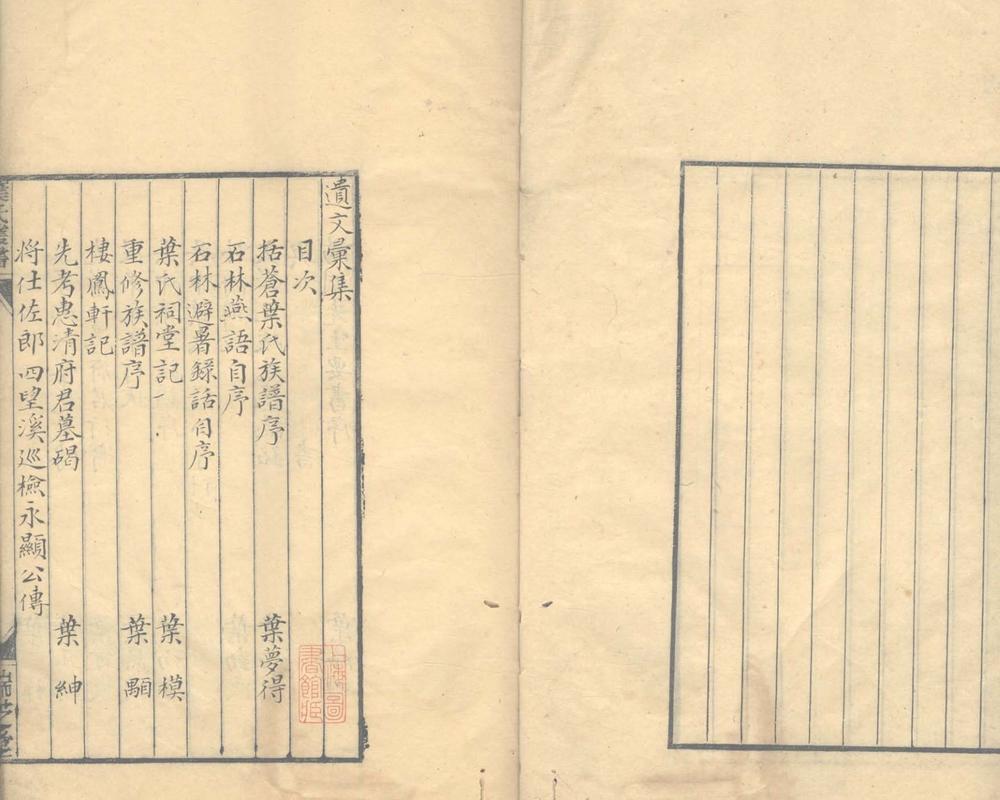 遺文彙集
目次
括蒼葉氏族譜序 葉夢得
石林燕語自序
石林避暑錄話自序
葉氏祠堂記 葉模
重修族譜序 葉顒
棲鳳軒記
先考惠清府君墓碣 葉紳
將仕佐郎四望溪巡檢永顯公傳